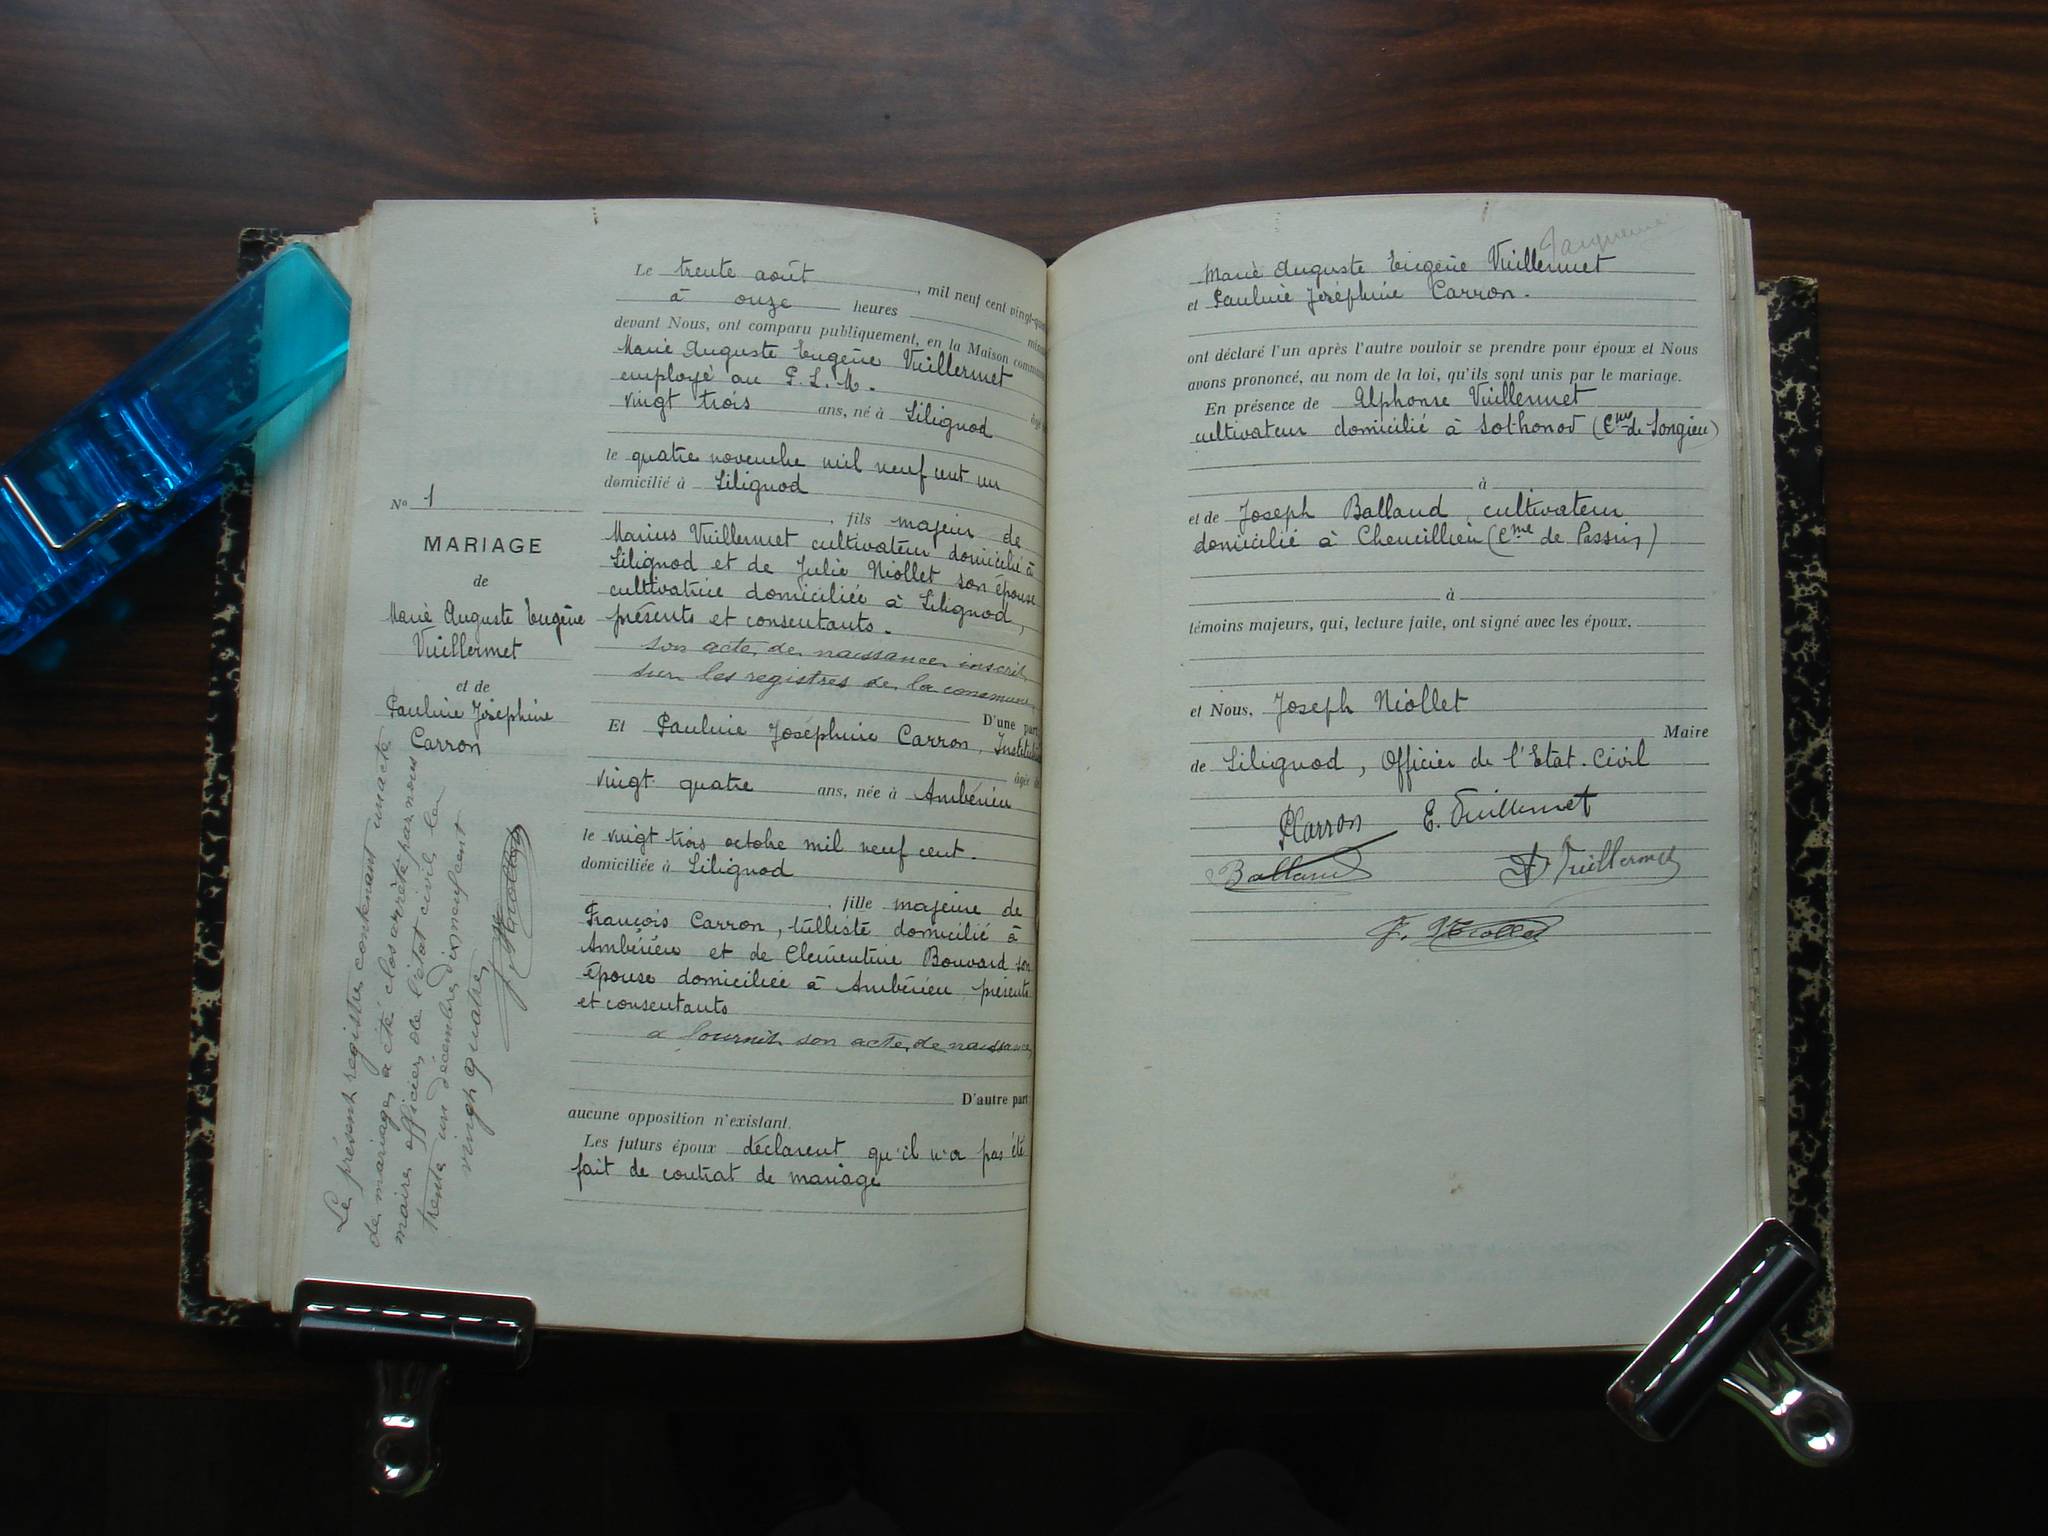 N° 1
MARIAGE
de
Marie Auguste Eugène
Vuillermet
et de
Pauline Joséphine
Carron
Le présent registre contenant un acte
de mariage a été clos arrêté par nous
maire officier de l'état civil le
trente un décembre dix neuf cent
vingt quatre
J. Niollet
Le trente août , mil neuf cent vingt-qua
à onze heures minu
devant Nous, ont comparu publiquement, en la Maison commune
Marie Auguste Eugène Vuillermet
employé au P. L. M.
vingt trois ans, né à Lilignod
le quatre novembre mil neuf cent un
domicilié à Lilignod
, fils majeur de
Marius Vuillermet cultivateur domicilié à
Lilignod et de Julie Niollet son épouse
cultivatrice domiciliée à Lilignod,
présents et consentants.
son acte de naissance inscrit
sur les registres de la commune
D'une part
Et Pauline Joséphine Carron, Institut
âgée de
vingt quatre ans, née à Ambérieu
le vingt trois octobre mil neuf cent.
domiciliée à Lilignod
, fille majeure de
François Carron, tulliste domicilié à
Ambérieu et de Clémentine Bouvard son
épouse domiciliée à Ambérieu, présents
et consentants
a fournit son acte de naissance
D'autre part
aucune opposition n'existant.
Les futurs époux déclarent qu'il n'a pas été
fait de contrat de mariage
Marie Auguste Eugène Vuillermet
et Pauline Joséphine Carron.
ont déclaré l'un après l'autre vouloir se prendre pour époux et Nous
avons prononcé, au nom de la loi, qu'ils sont unis par le mariage.
En présence de Alphonse Vuillermet
cultivateur domicilié à Sothonod (Cne de Songieu)
à
et de Joseph Balland cultivateur
domicilié à Chemillieu (Cne de Passin)
à
témoins majeurs, qui, lecture faite, ont signé avec les époux.
et Nous, Joseph Niollet
Maire
de Lilignod, Officier de l'Etat-Civil
PCarron E. Vuillermet
Balland A Vuillermet
J. Niollet